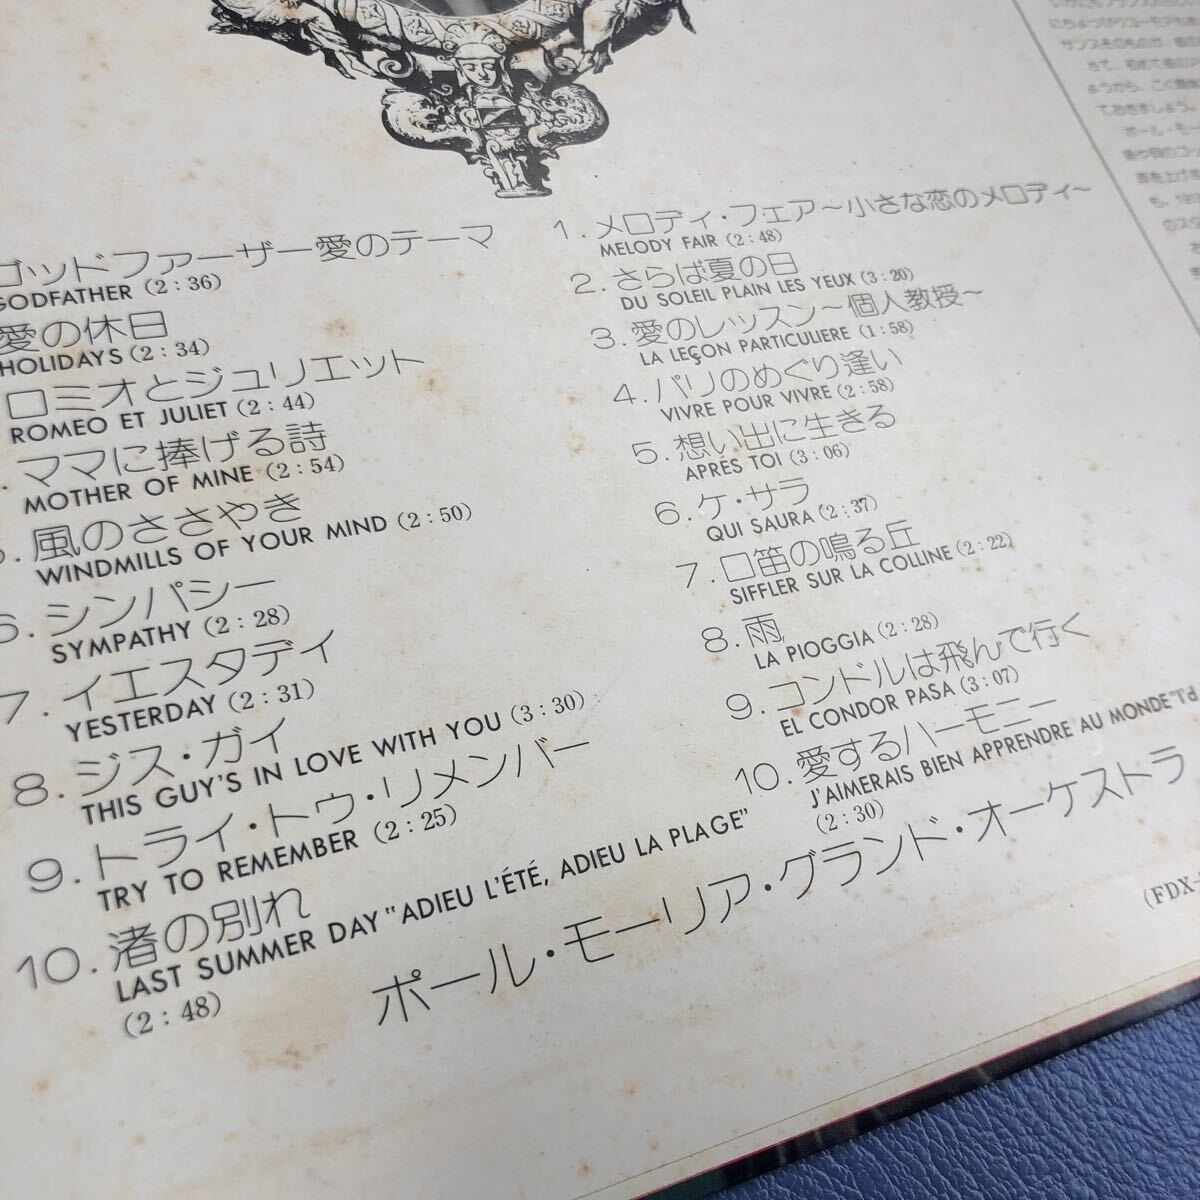 ゴッドファーザー愛のテーマ
GODFATHER (2:36)
愛の休日
HOLIDAYS (2:34)
ロミオとジュリエット
ROMEO ET JULIET (2:44)
ママに捧げる詩
MOTHER OF MINE (2:54)
風のささやき
WINDMILLS OF YOUR MIND (2:50)
6. シンパシー
SYMPATHY (2:28)
7. イエスタデイ
YESTERDAY (2:31)
8. ジス・ガイ
THIS GUY'S IN LOVE WITH YOU (3:30)
9. トライ・トゥ・リメンバー
TRY TO REMEMBER (2:25)
10. 渚の別れ
LAST SUMMER DAY "ADIEU L'ÉTÉ, ADIEU LA PLAGE"
(2:48)
1. メロディ・フェア〜小さな恋のメロディ〜
MELODY FAIR (2:48)
2. さらば夏の日
DU SOLEIL PLAIN LES YEUX (3:20)
3. 愛のレッスン〜個人教授〜
LA LEÇON PARTICULIERE (1:58)
4. パリのめぐり逢い
VIVRE POUR VIVRE (2:58)
5. 想い出に生きる
APRÉS TOI (3:06)
6. ケ・サラ
QUI SAURA (2:37)
7. 口笛の鳴る丘
SIFFLER SUR LA COLLINE (2:22)
8. 雨
LA PIOGGIA (2:28)
9. コンドルは飛んで行く
EL CONDOR PASA (3:07)
10. 愛するハーモニー
J'AIMERAIS BIEN APPRENDRE AU MONDE "I'D
(2:30)
ポール・モーリア・グランド・オーケストラ
(FDX-